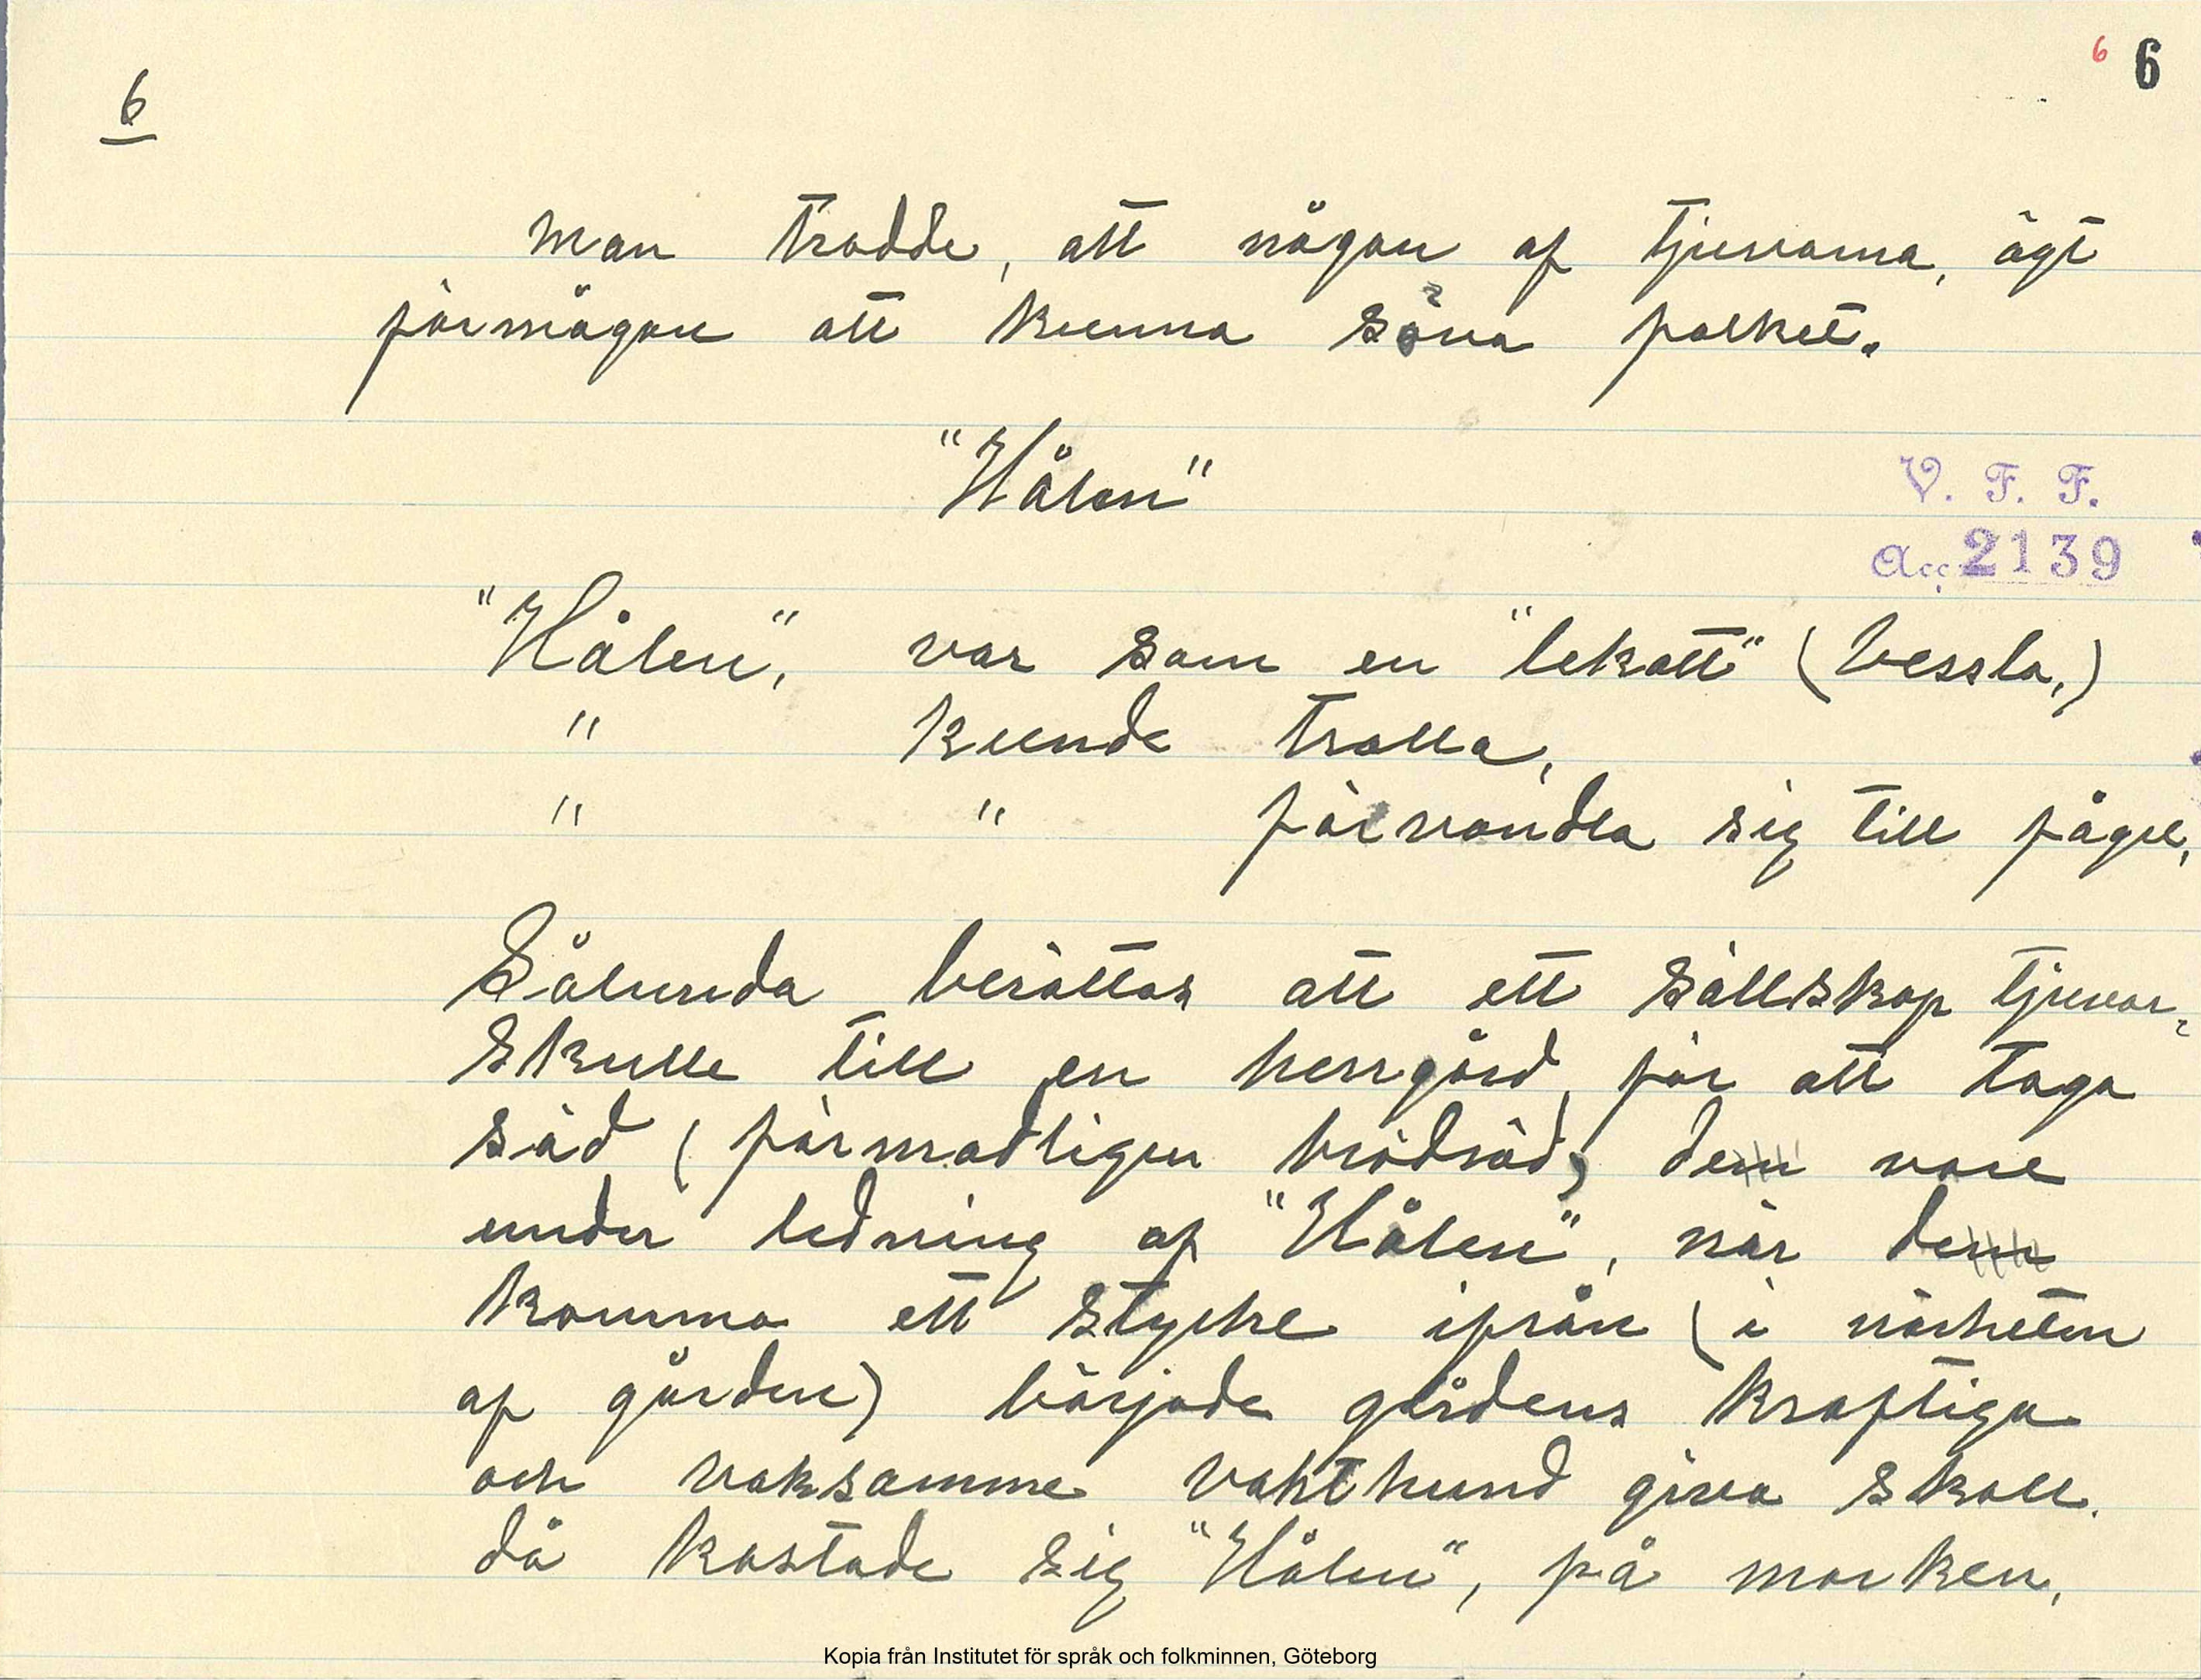 6
6 6
man trodde, att någon af tjuvarna, ägt
förmågan att kunna söva folket.
"Hålen"
V. F. F.
Acc. 2139
"Hålen", var som en "lekatt" (Vessla,)
" kunde trolla,
" " förvandla sig till fågel,
Sålunda berättas att ett sällskap tjuvar,
skulle till en herrgård, för att taga
säd (förmodligen brödsäd) dem vore
under ledning af "Hålen", när dem
komma ett stycke ifrån (i närheten
af gården) började gårdens kraftiga
och vaksamme vakthund giva skall.
då kastade sig "Hålen", på marken,
Kopia från Institutet för språk och folkminnen, Göteborg